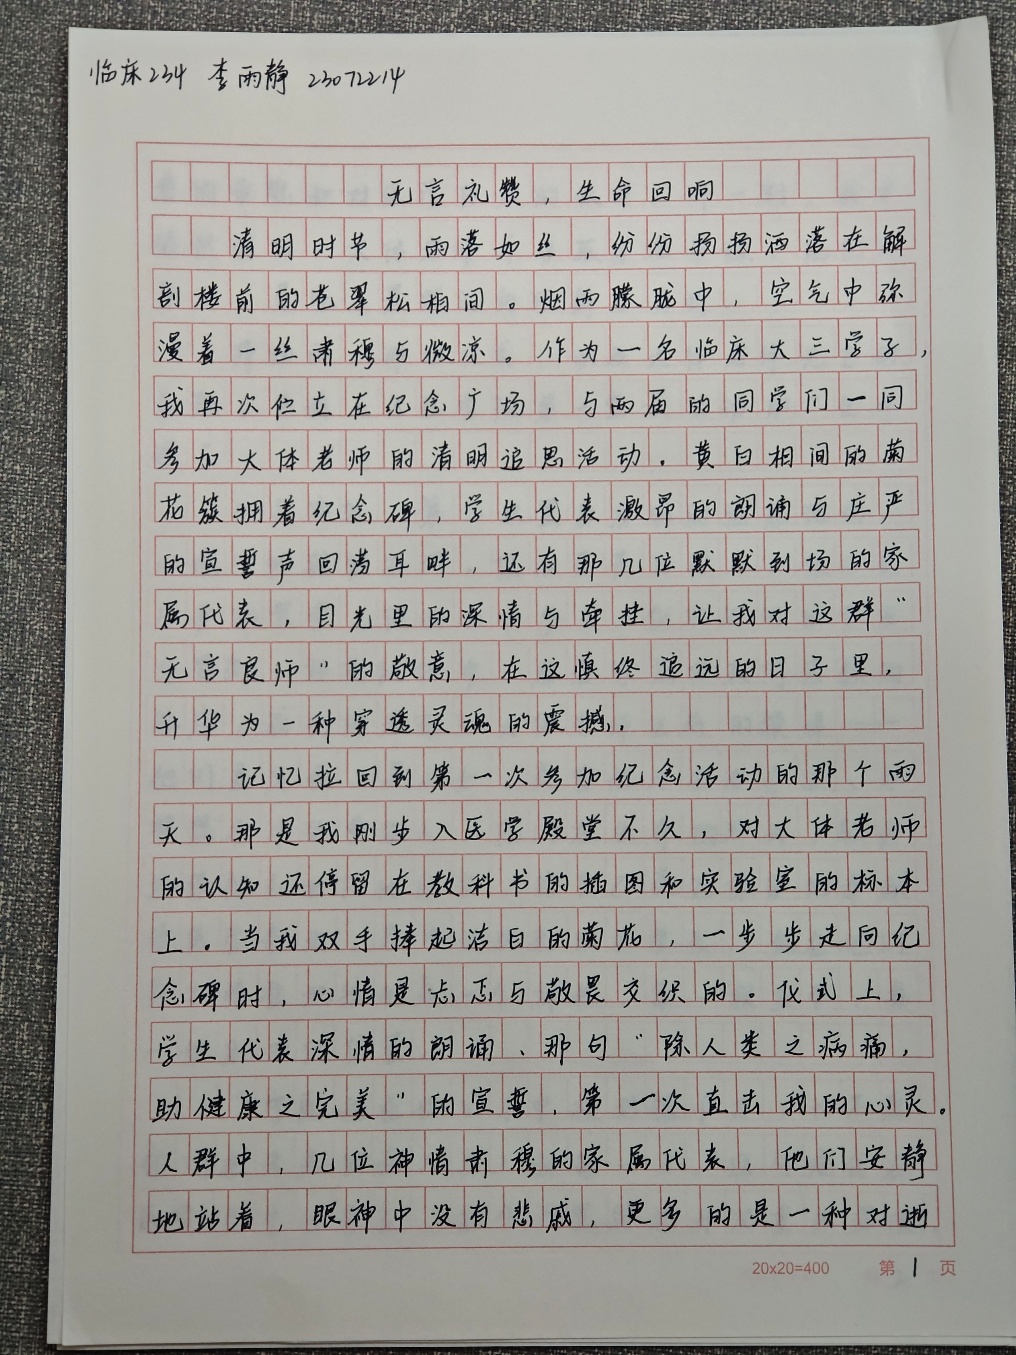 临床234 李雨静 23072214
无言礼赞，生命回响
清明时节，雨落如丝，纷纷扬扬洒落在解
剖楼前的苍翠松柏间。烟雨朦胧中，空气中弥
漫着一丝肃穆与微凉。作为一名临床大三学子，
我再次伫立在纪念广场，与两届的同学们一同
参加大体老师的清明追思活动。黄白相间的菊
花簇拥着纪念碑，学生代表激昂的朗诵与庄严
的宣誓声回荡耳畔，还有那几位默默到场的家
属代表，目光里的深情与牵挂，让我对这群“
无言良师”的敬意，在这慎终追远的日子里，
升华为一种穿透灵魂的震撼。
记忆拉回到第一次参加纪念活动的那个雨
天。那是我刚步入医学殿堂不久，对大体老师
的认知还停留在教科书的插图和实验室的标本
上。当我双手捧起洁白的菊花，一步步走向纪
念碑时，心情是忐忑与敬畏交织的。仪式上，
学生代表深情的朗诵、那句“除人类之病痛，
助健康之完美”的宣誓，第一次直击我的心灵。
人群中，几位神情肃穆的家属代表，他们安静
地站着，眼神中没有悲戚，更多的是一种对逝
20x20=400 第 1 页